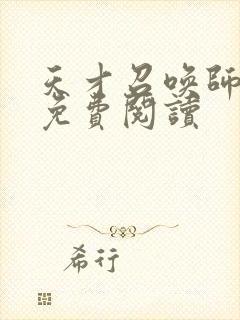 天才召喚師
免費閱讀
希行